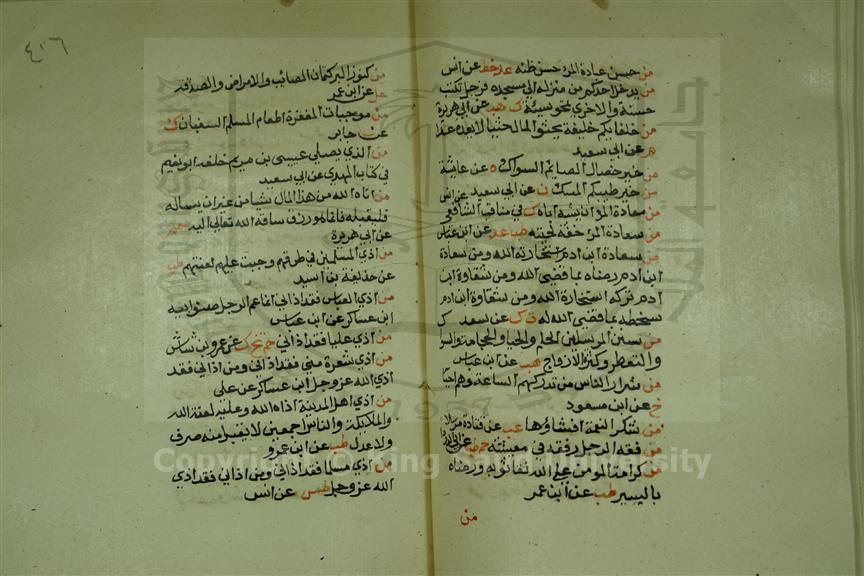 من حسن عبادة المرء حسن ظنه عد خط عن انس
من يدخل احدكم من منزله الى مسجده فرجل تكتب
حسنة والاخرى تمحو سيئة ك هب عن ابي هريرة
من خلفائكم خليفة يحثو المال حثيا لا يعده عدا
م عن ابي سعيد
من خير خصال الصائم السواك ه عن عائشة
من خير طيبكم المسك ن عن ابي سعيد
من سعادة المرء ان يشبه اباه ك في مناقب الشافعي عن انس
من سعادة المرء خفة لحيته طب عد عن ابن عباس
من سعادة ابن ادم استخارته الله ومن سعادة
ابن ادم رضاه بما قضى الله ومن شقاوة ابن
ادم تركه استخارة الله ومن شقاوة ابن ادم
سخطه بما قضى الله له ت ك عن سعد
من سنن المرسلين الحلم والحيا والحجامة والسواك
والتعطر وكثرة الازواج هب عن ابن عباس
من شرار الناس من تدركهم الساعة وهم احيا
خ عن ابن مسعود
من شكر النعمة افشاؤها عب عن قتادة مرسلا
من فقه الرجل رفقه في معيشته حم طب عن ابي الدردا
من كرامة المؤمن على الله نقا ثوبه ورضاه
باليسير طب عن ابن عمر
من
٤١٦
من كنوز البر كتمان المصائب والامراض والصدقة
حل عن ابن عمر
من موجبات المغفرة اطعام المسلم السغبان ك
عن جابر
من الذي يصلي عيسى بن مريم خلفه ابو نعيم
في كتاب المهدي عن ابي سعيد
من اتاه الله من هذا المال شيا من غير ان يساله
فليقبله فانما هو رزق ساقه الله تعالى اليه حم
عن ابي هريرة
من اذى المسلمين في طرقهم وجبت عليهم لعنتهم طب
عن حذيفة بن اسيد
من اذى العباس فقد اذاني انما عم الرجل صنو ابيه
ابن عساكر عن ابن عباس
من اذى عليا فقد اذاني حم تخ ك عن عمرو بن شاس
من اذى شعرة مني فقد اذاني ومن اذاني فقد
اذى الله عز وجل ابن عساكر عن علي
من اذى اهل المدينة اذاه الله وعليه لعنة الله
والملايكة والناس اجمعين لا يقبل منه صرف
ولا عدل طب عن ابن عمرو
من اذى مسلما فقد اذاني ومن اذاني فقد اذى
الله عز وجل طس عن انس
Copyright © King Saud University